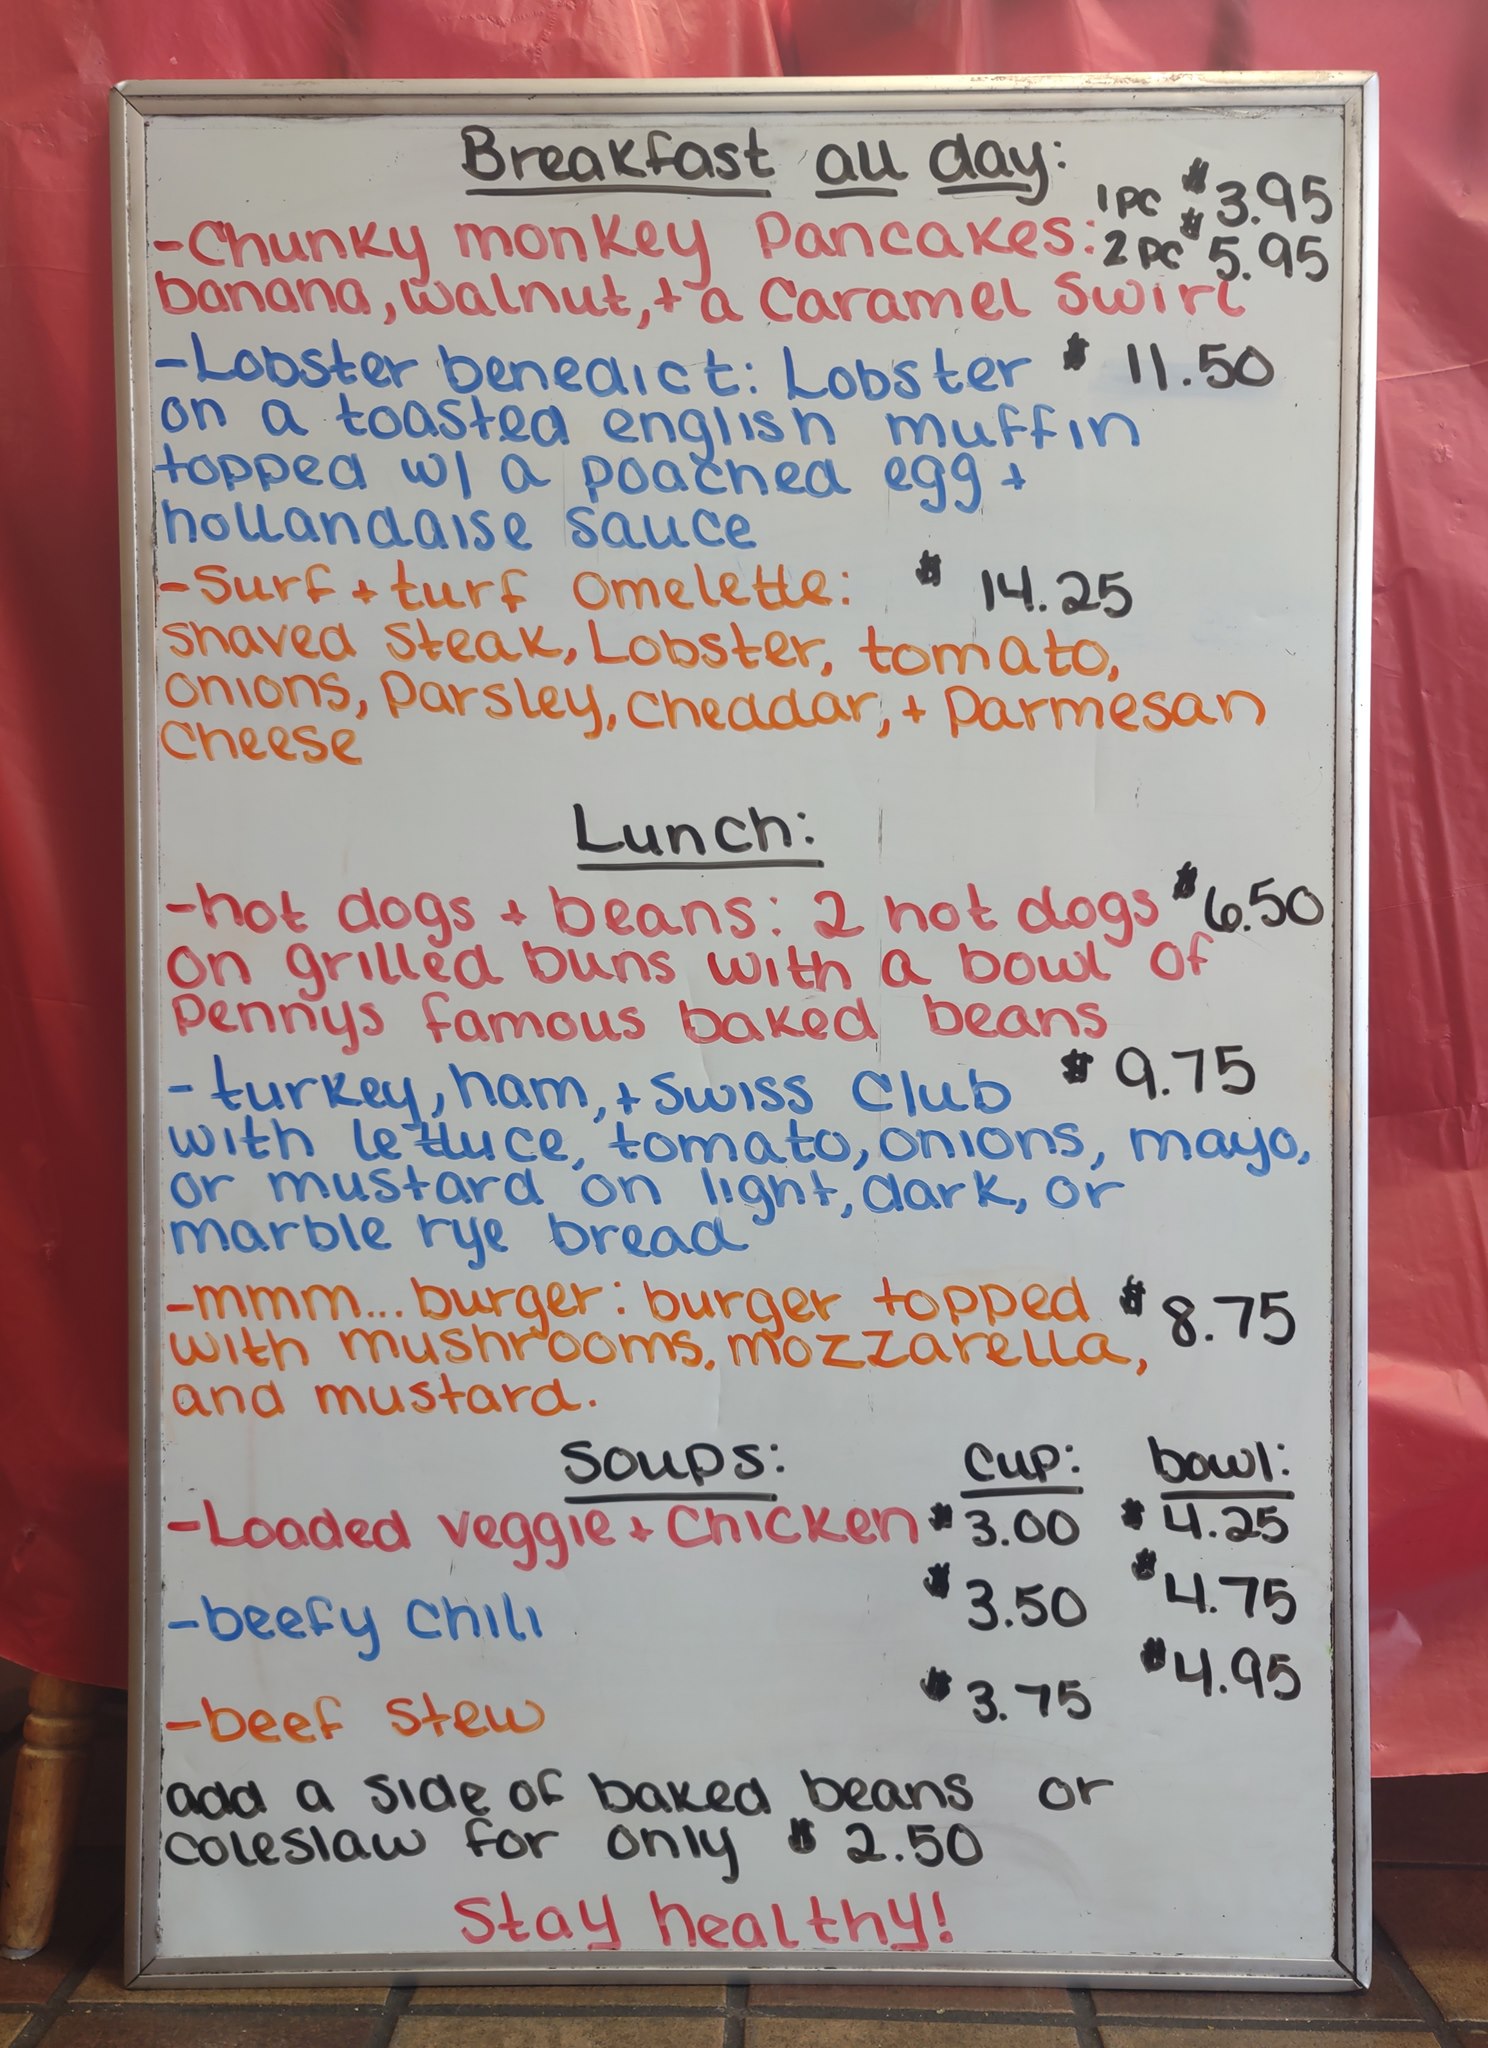 Breakfast all day:
1 PC $3.95
-Chunky monkey Pancakes: 2 PC $5.95
banana, walnut, + a Caramel Swirl
-Lobster benedict: Lobster $11.50
on a toasted english muffin
topped w/ a poached egg +
hollandaise sauce
-Surf + turf omelette: $14.25
Shaved Steak, Lobster, tomato,
onions, Parsley, cheddar, + Parmesan
Cheese
Lunch:
-hot dogs + beans: 2 hot dogs $6.50
on grilled buns with a bowl of
Pennys famous baked beans
-turkey, ham, + Swiss Club $9.75
with lettuce, tomato, onions, mayo,
or mustard on light, dark, or
marble rye bread
-mmm... burger: burger topped $8.75
with mushrooms, mozzarella,
and mustard.
Soups: Cup: bowl:
-Loaded veggie + Chicken $3.00 $4.25
-beefy Chili $3.50 $4.75
-beef Stew $3.75 $4.95
add a side of baked beans or
coleslaw for only $2.50
Stay healthy!